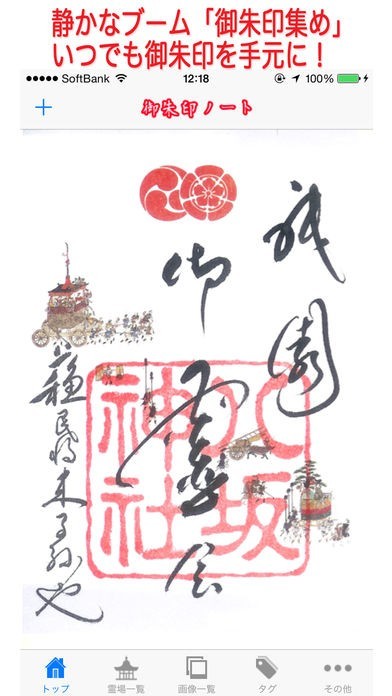 静かなブーム「御朱印集め」
いつでも御朱印を手元に！
SoftBank 12:18 100%
御朱印ノート
祇園
御靈会
八坂神社
蘇民将来子孫也
トップ 霊場一覧 画像一覧 タグ その他